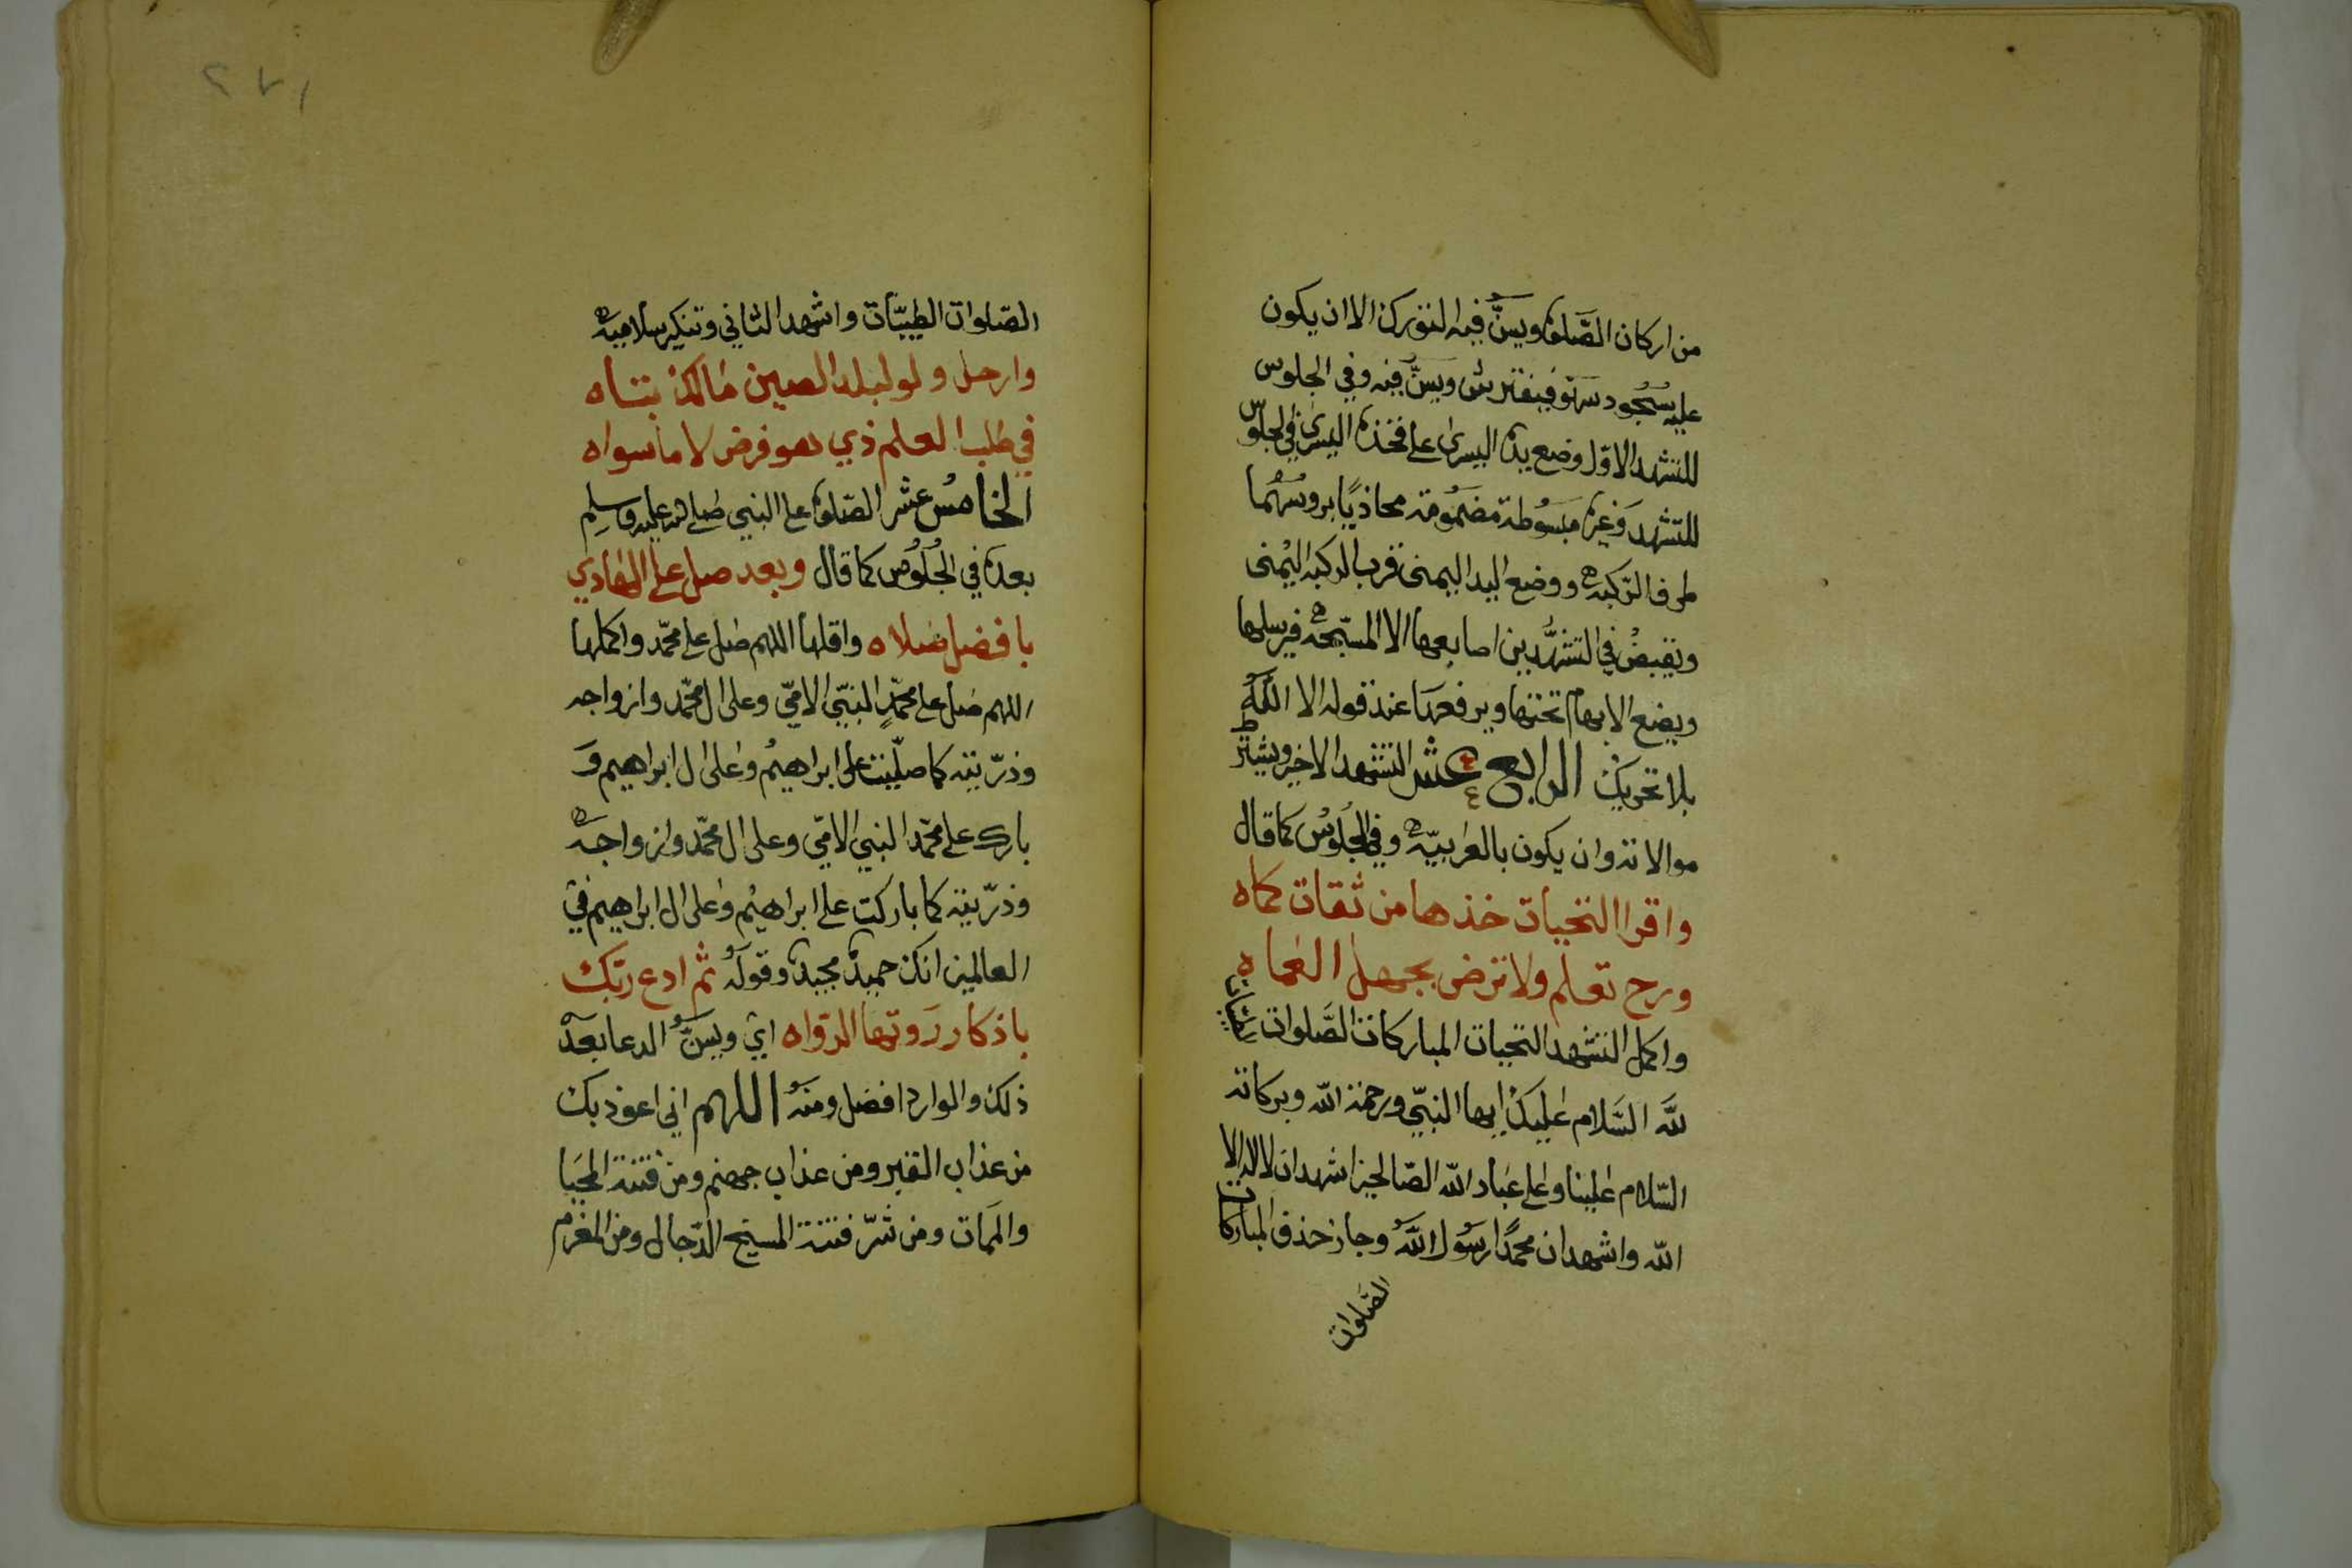 من اركان الصّلوة ويسنُّ فيه التورك الا ان يكون
عليه سُجُود سهو فيفترش ويسنُّ فيه وفي الجلوس
للتشهد الاوّل وضع يده اليسرى على فخذه اليسرى في الجلوس
للتشهد وغيره مبسُوطة مضمُومة محاذيًا بروسُهما
طرف الرّكبة ووضع اليد اليمنى قرب الركبة اليُمنى
ويقبضُ في التشهُّدين اصابعها الا المسبّحة فيرسلها
ويضع الابهام تحتها ويرفعها عند قوله الا اللّٰه
بلا تحريك الرابع عشر التشهد الاخير ويشترط
موالاته وان يكون بالعرابيّة وفي الجُلوُس كما قال
واقرا التحيات خذها من ثقات كماه
ورح تعلم ولا ترض بجهل العماه
واكمل التشهد التحيات المباركات الصَّلوات الطيبات
للّٰه السَّلام عليك ايها النبيّ ورحمة اللّه وبركاته
السّلام علينا وعلى عباد اللّه الصّالحين اشهد ان لا اله الا
اللّه واشهد ان محمدًا رسُول اللّٰه وجاز حذف المباركات
الصَّلوات
الصّلوات الطيبّات واشهد الثاني وتنكير سلاميه
وارحل ولو لبلد الصين مالك بتاه
في طلب العلم ذي هو فرض لا ما سواه
الخامسُ عشر الصّلوة على النبي صلى الله عليه وسلم
بعده في الجُلُوُس كما قال وبعد صل على الهادي
با فضل صلاه واقلها اللهم صل على محمّد واكملها
اللهم صل على محمّدٍ النبيّ الاميّ وعلى ال محمّد وازواجه
وذرّيته كما صلّيت على ابراهيمُ وعلى ال ابراهيم وَ
بارك على محمّد النبيّ الاميّ وعلى ال محمّد وازواجه
وذرّيته كما باركت على ابراهيُم وعلى ال ابراهيم في
العالمين انك حميدٌ مجيدٌ وقولهُ ثم ادع ربّك
باذكار روتها الرّواه اي ويسنُّ الدعا بعدَ
ذلك والوارد افضل ومنهُ اللهم اني اعوذ بك
من عذاب القبر ومن عذاب جهنم ومن فتنة المحيَا
والممَات ومن شرّ فتنة المسيح الدّجال ومن المغرم
٢٧١